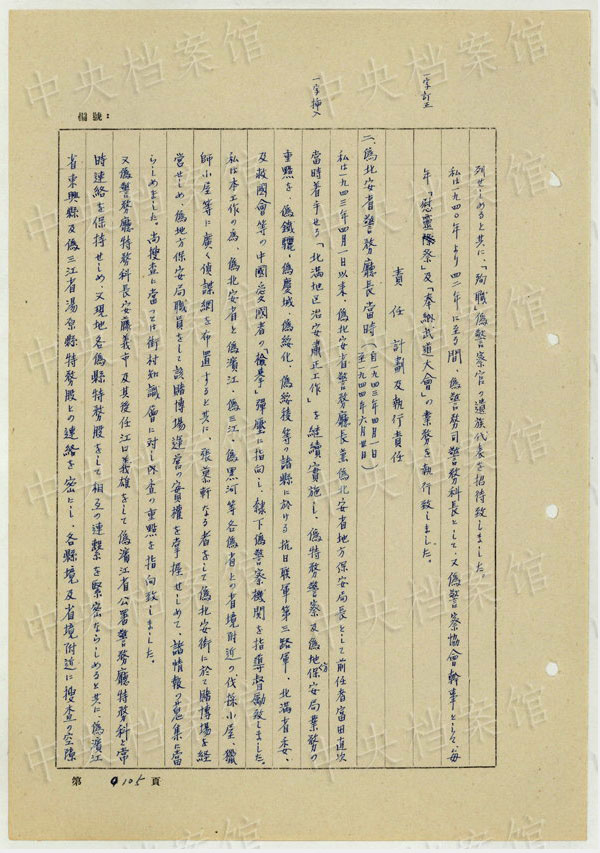 一字訂正
一字挿入
編號：
列せしめると共に、「殉職」偽警察官の遺族代表を招待致しました。
私は一九四〇年より四二年に至る間、偽警務司警務科長として、又偽警察協會幹事として、毎
年「慰靈祭」及「奉納武道大會」の業務を執行致しました。
責任　計劃及執行責任
二、偽北安省警務廳長當時（自一九四三年四月一日 至一九四四年六月廿日）
私は一九四三年四月一日以来、偽北安省警務廳長兼偽北安省地方保安局長として前任者富田直次
當時着手せる「北満地区治安肅正工作」を継續實施し、偽特務警察及偽地方保安局業務の
重點を、偽鐵驪、偽慶城、偽綏化、偽綏稜等の諸縣に於ける抗日联軍第三路軍、北満省委、
及救國會等の中國愛國者の「検挙」彈壓に指向し、隷下偽警察機関を指導督勵致しました。
私は本工作の為、偽北安省と偽濱江、偽三江、偽黒河等各偽省との省境附近の伐採小屋、獵
師小屋等に廣く偵諜網を布置すると共に、張慕軒なる者をして偽北安街に於て賭博場を経
営せしめ、偽地方保安局職員をして該賭博場運営の實權を掌握せしめて、諸情報の蒐集に當
らしめました。尚搜查に當っては街村知識層に対し搜查の重點を指向致しました。
又偽警務廳特務科長安藤義巾及其後任江口義雄をして偽濱江省公署警務廳特務科と常
時連絡を保持せしめ、又現地各偽縣特務股をして相互の連繋を緊密ならしめると共に、偽濱江
省東興縣及偽三江省湯原縣特務股との連絡を密にし、各縣境及省境附近に搜查の空隙
第 105 頁
中央档案馆